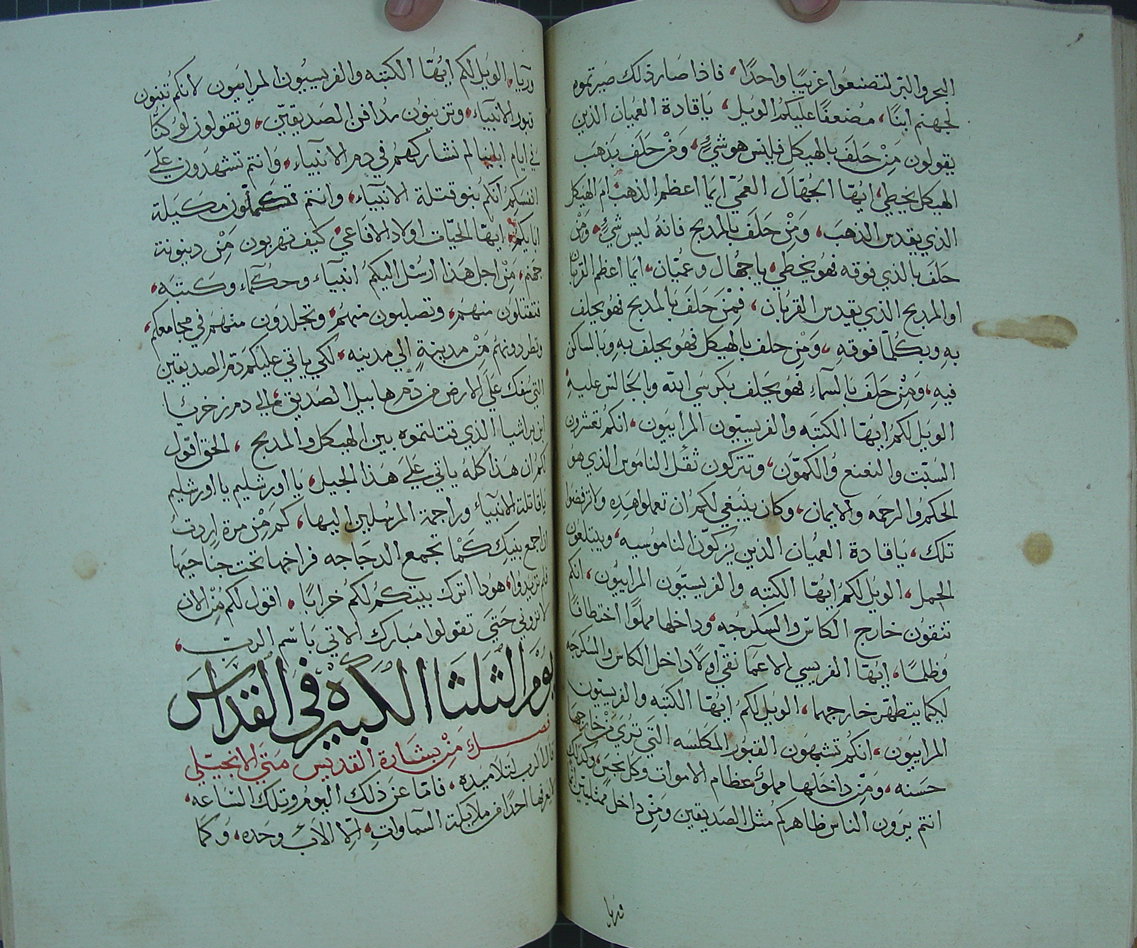 البحر والبر لتصنعوا غريبا واحدا، فاذا صار ذلك صيرتموه
لجهنم ابنا، مضعفا عليكم الويل، ياقادة العميان الذين
يقولون من حلف بالهيكل فليس هو شي، ومن حلف بدهب
الهيكل يخطي، ايها الجهال العمي ايما اعظم الذهب ام الهيكل
الذي يقدس الذهب، ومن حلف بالمدبح فانه ليس شي، ومن
حلف بالذي فوقه فهو يخطي، ياجهال وعميان، ايما اعظم القربان
او المدبح الذي يقدس القربان، فمن حلف بالمدبح فهو يحلف
به وبكلما فوقه، ومن حلف بالهيكل فهو يحلف به وبالساكن
فيه، ومن حلف بالسماء فهو يحلف بكرسي الله وبالجالس عليه
الويل لكم ايها الكتبه والفريسيون المراييون، انكم تعشرون
السبت والنعنع والكمون، وتتركون ثقل الناموس الذي هو
الحكم والرحمه والايمان، وكان ينبغي لكم ان تعملوا هده ولا ترفضوا
تلك، ياقادة العميان الدين يزكون الناموسه ويبتلعون
الجمل، الويل لكم ايها الكتبه والفريسيون المراييون، انكم
تنقون خارج الكاس والسكرجه وداخلها مملوا اختطافا
وظلما، ايها الفريسي الاعما نقي اولا داخل الكاس والسكرجه
لكيما يتطهر خارجهما، الويل لكم ايها الكتبه والفريسيون
المراييون، انكم تشبهون القبور المكلسه التي تري من خارجها
حسنه، ومن داخلها مملوه عظام الاموات وكل نجس، وكدلك
انتم يرون الناس ظاهركم مثل الصديقين ومن داخل ممتليين اثما
وريا
وريا، الويل لكم ايها الكتبه والفريسيون المراييون لانكم تبنون
قبور الانبياء، وتزينون مدافن الصديقين، وتقولون لو كنا
في ايام ابائنا لم نشاركهم في دم الانبياء، وانتم تشهدون علي
انفسكم انكم بنو قتلة الانبياء، وانتم تكملون مكيلة
ابايكم، ايها الحيات اولاد الافاعي كيف تهربون من دينونة
جهنم، من اجل هذا ارسل اليكم انبياء وحكماء وكتبه،
فتقتلون منهم، وتصلبون منهم، وتجلدون منهم في مجامعكم،
وتطردونهم من مدينة الي مدينه، لكي ياتي عليكم دم الصديقين
التي سفك علي الارض من دم هابيل الصديق، الي دم زخريا
ابن براشيا الذي قتلتموه بين الهيكل والمدبح، الحق اقول
لكم ان هذا كله ياتي علي هذا الجيل، يا اورشليم يا اورشليم
ياقاتلة الانبياء وراجمة المرسلين اليها، كم من مرة اردت
ان اجمع بنيك كما تجمع الدجاجه فراخها تحت جناحيها
فلم تريدوا، هوذا اترك بيتكم لكم خرابا، اقول لكم من الان
لا تروني حتي تقولوا مبارك الاتي باسم الرب،
يوم الثلثا الكبيره في القداس
فصل من بشارة القديس متي الانجيلي
قال الرب لتلاميده، فاما عن ذلك اليوم وتلك الساعه،
لا يعرفها احدا من ملايكة السماوات، الا الاب وحده، وكما